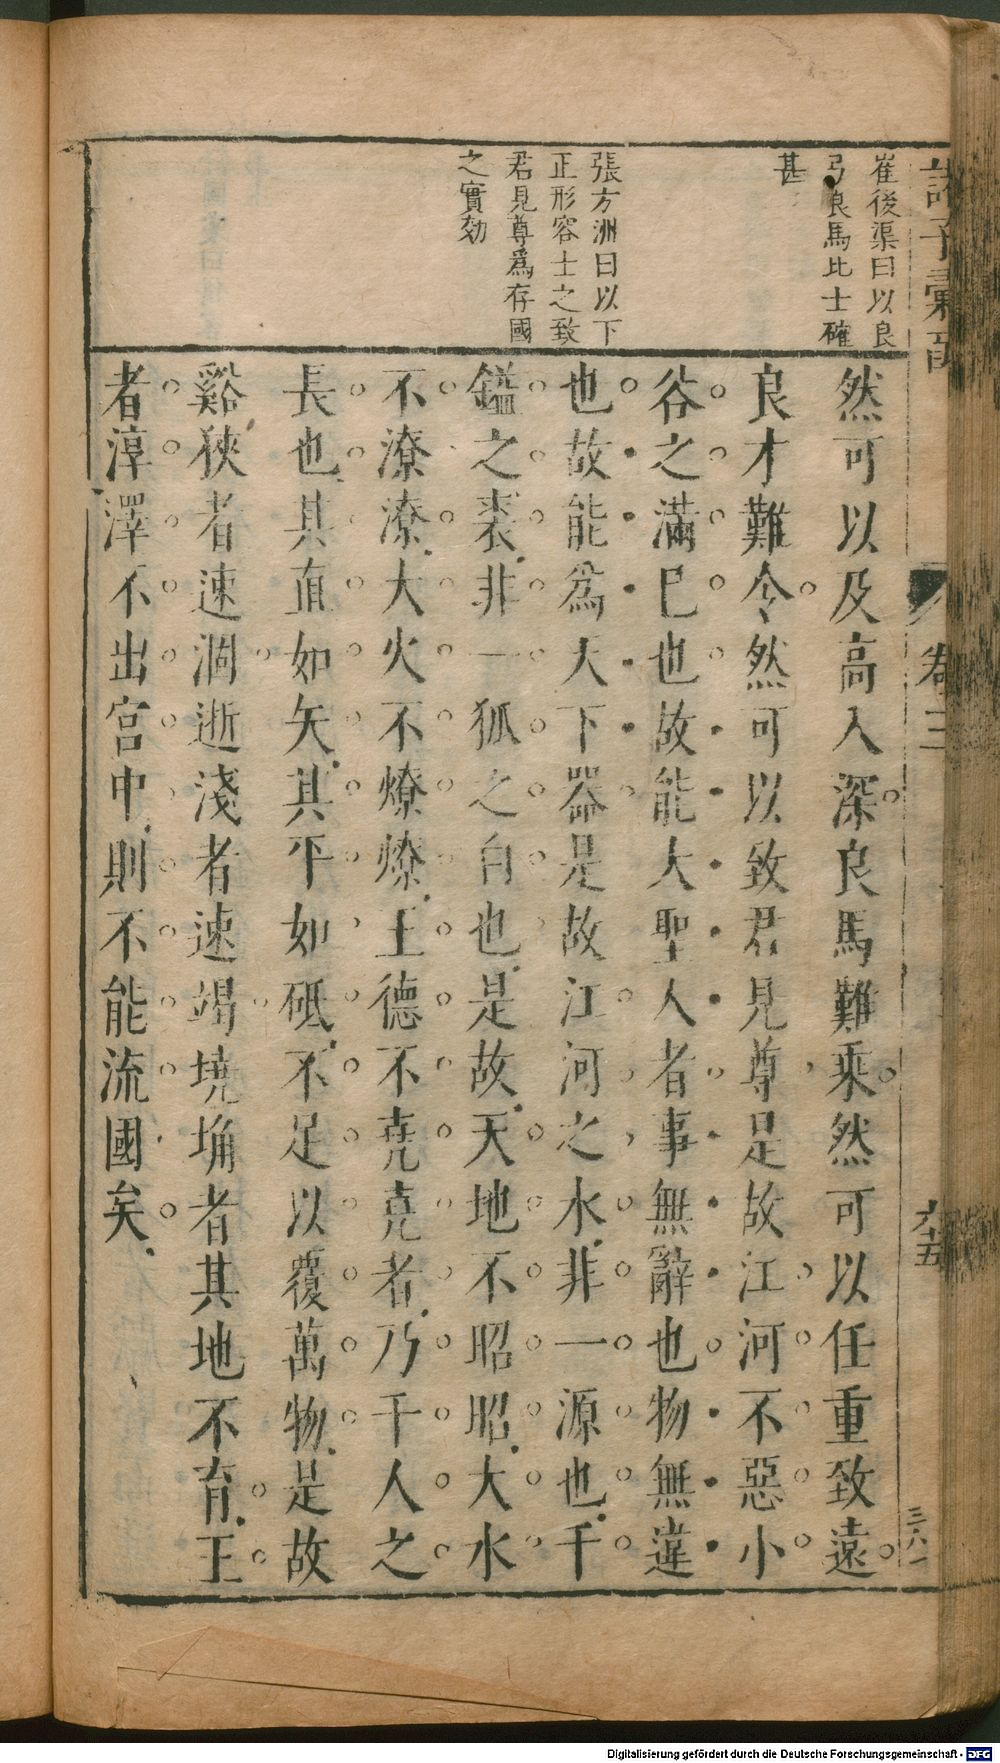 崔後渠曰以良
弓良馬比士確
甚
張方洲曰以下
正形容士之致
君見尊爲存國
之實効
然可以及高入深良馬難乘然可以任重致遠
良才難令然可以致君見尊是故江河不惡小
谷之滿巳也故能大聖人者事無辭也物無違
也故能爲天下器是故江河之水非一源也千
鎰之裘非一狐之白也是故天地不昭昭大水
不潦潦大火不燎燎王德不堯堯者乃千人之
長也其直如矢其平如砥不足以覆萬物是故
谿狹者速涸逝淺者速竭墝埆者其地不育王
者淳澤不出宮中則不能流國矣
卷三
九十五
三六一
Digitalisierung gefördert durch die Deutsche Forschungsgemeinschaft - DFG